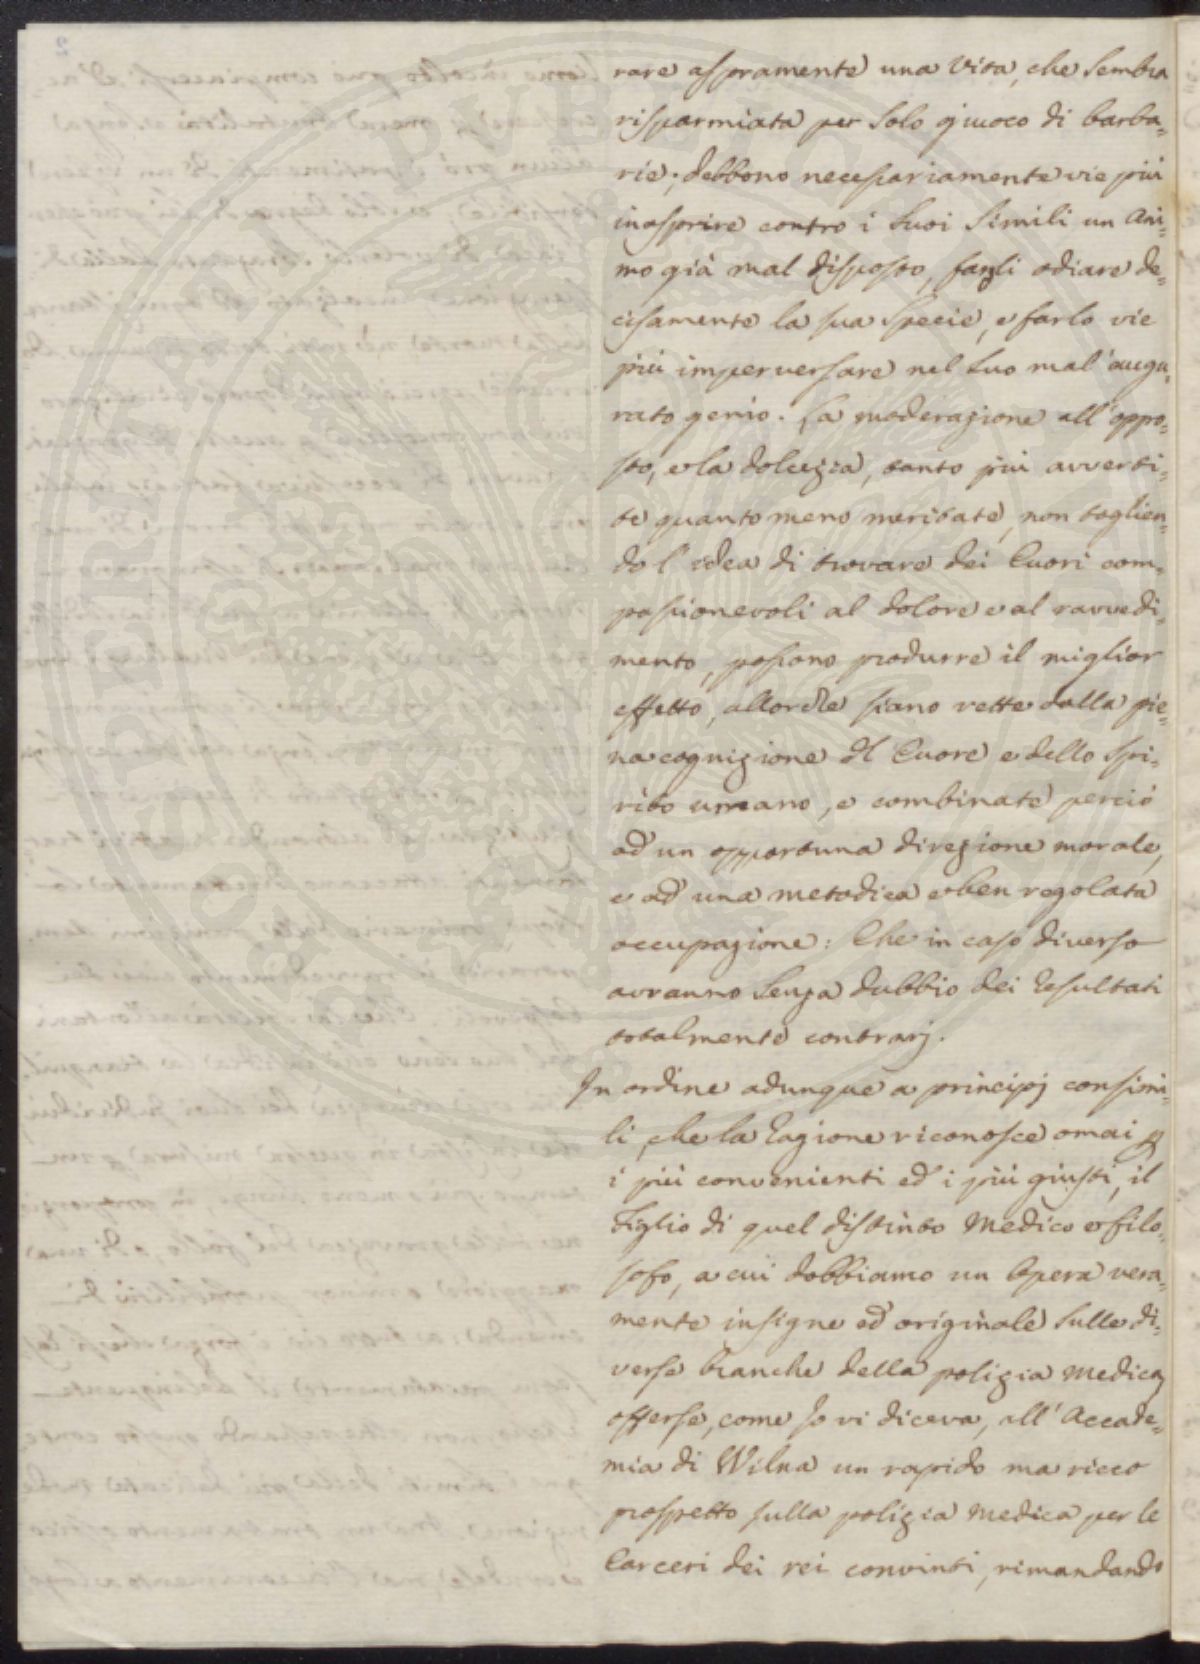 rare aspramente una Vita, che Sembra
risparmiata per Solo giuoco di barba=
rie; debbono necessariamente vie più
inasprire contro i Suoi Simili un Ani=
mo già mal disposto, fargli odiare de=
cisamente la sua Specie, e farlo vie
più imperversare nel Suo mal'augu=
rato genio. La moderazione all'oppo=
sto, e la dolcezza, tanto più avverti=
te quanto meno meritate, non toglien=
do l'idea di trovare dei Cuori com=
passionevoli al dolore e al ravvedi=
mento, possono produrre il miglior
effetto, allorche siano rette dalla pie=
na cognizione del Cuore e dello Spi=
rito umano, e combinate perciò
ad un opportuna direzione morale,
e ad una metodica e ben regolata
occupazione: Che in caso diverso
avranno Senza dubbio dei resultati
totalmente contrarj.
In ordine adunque a principj consimi=
li, che la ragione riconosce omai p
i più convenienti ed i più giusti, il
Figlio di quel distinto Medico e filo=
sofo, a cui dobbiamo un Opera vera=
mente insigne ed originale Sulle di=
verse branche della polizia Medica,
offerse, come Io vi diceva, all'Accade=
mia di Wilna un rapido ma ricco
prospetto sulla polizia Medica per le
Carceri dei rei convinti, rimandando